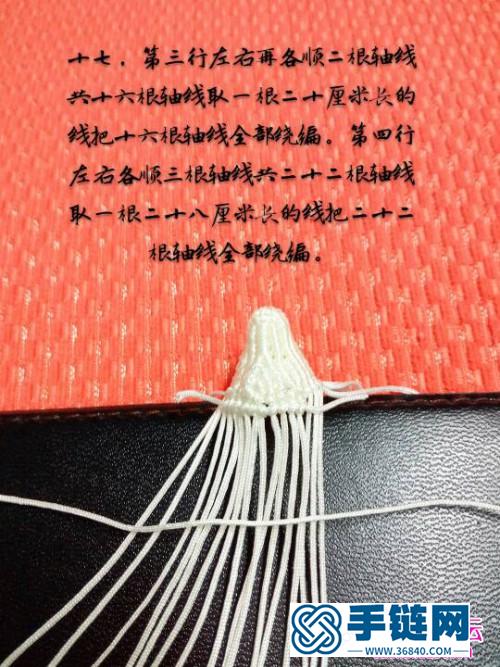 十七，第三行左右再各顺二根轴线
共十六根轴线取一根二十厘米长的
线把十六根轴线全部绕编。第四行
左右各顺三根轴线共二十二根轴线
取一根二十八厘米长的线把二十二
根轴线全部绕编。
手链网
www.36840.com